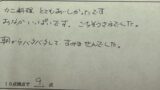 カニ料理 とてもおいしかったです
おなかいっぱいです。ごちそうさまでした。
朝からバタバタして すみませんでした。
10点満点で 9 点